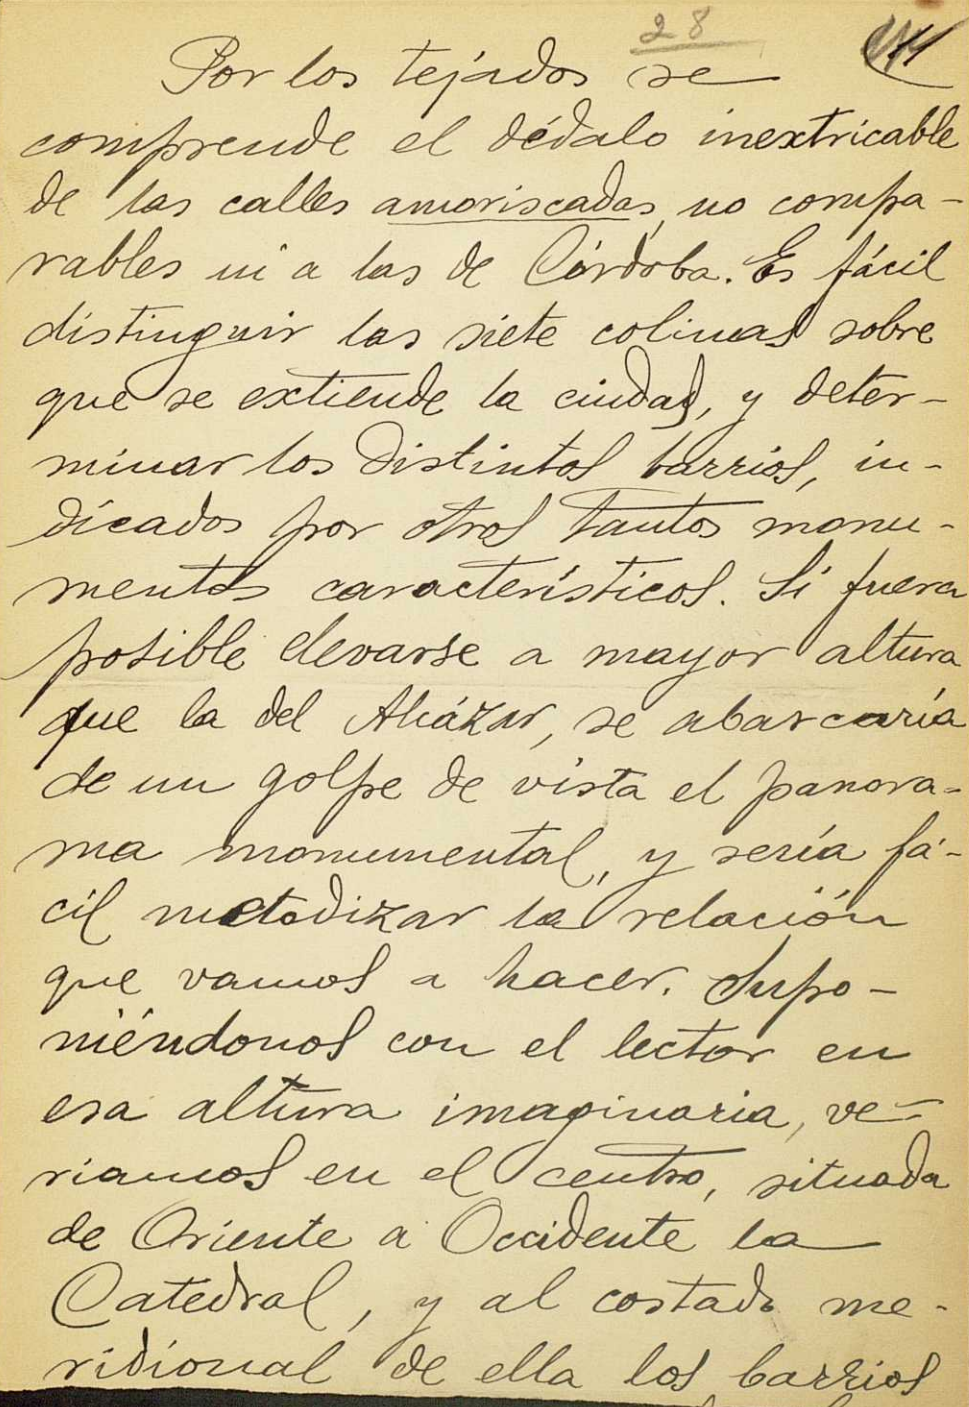 28
Por los tejados se
comprende el dédalo inextricable
de las calles amoriscadas, no compa-
rables ni a las de Córdoba. Es fácil
distinguir las siete colinas sobre
que se extiende la ciudad, y deter-
minar los distintos barrios, in-
dicados por otros tantos monu-
mentos característicos. Si fuera
posible elevarse a mayor altura
que la del Alcázar, se abarcaría
de un golpe de vista el panora-
ma monumental, y sería fá-
cil metodizar la relación
que vamos a hacer. Supo-
niéndonos con el lector en
esa altura imaginaria, ve-
riamos en el centro, situada
de Oriente a Occidente la
Catedral, y al costado me-
ridional de ella los barrios